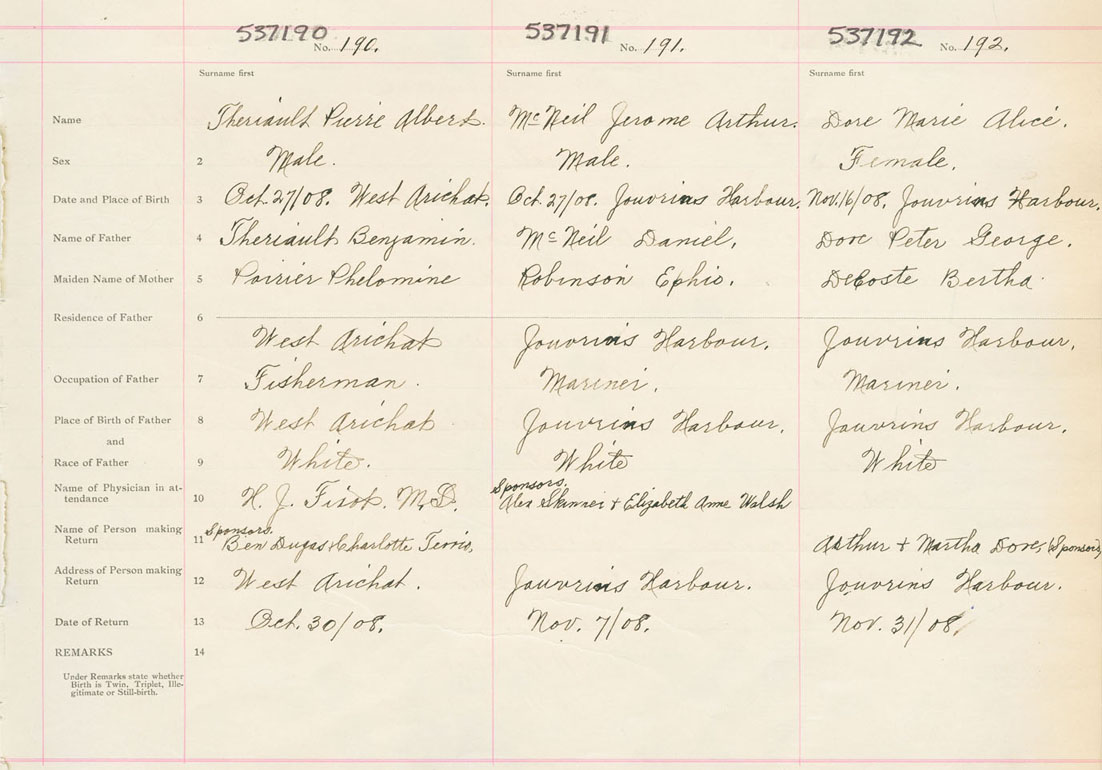 537190 No. 190. 537191 No. 191. 537192 No. 192.
Surname first Surname first Surname first
Name Theriault Pierre Albert. McNeil Jerome Arthur. Dore Marie Alice.
Sex 2 Male. Male. Female.
Date and Place of Birth 3 Oct. 27/08. West Arichat. Oct. 27/08. Jouvrins Harbour. Nov. 16/08. Jouvrins Harbour.
Name of Father 4 Theriault Benjamin. McNeil Daniel. Dore Peter George.
Maiden Name of Mother 5 Poirier Phelomine Robinson Ephio. DeCoste Bertha
Residence of Father 6
West Arichat Jouvrins Harbour. Jouvrins Harbour.
Occupation of Father 7 Fisherman. Mariner. Mariner.
Place of Birth of Father 8 West Arichat Jouvrins Harbour. Jouvrins Harbour.
and
Race of Father 9 White. White White
Name of Physician in at-
tendance 10 H. J. M.D. Sponsors. Alex Skinner + Elizabeth Anne Walsh
Name of Person making
Return 11 Sponsors. Ben Dugas + Charlotte Terrio. Arthur + Martha Dore, (Sponsors)
Address of Person making
Return 12 West Arichat. Jouvrins Harbour. Jouvrins Harbour.
Date of Return 13 Oct. 30/08. Nov. 7/08. Nov. 31/08.
REMARKS 14
Under Remarks state whether
Birth is Twin, Triplet, Ille-
gitimate or Still-birth.